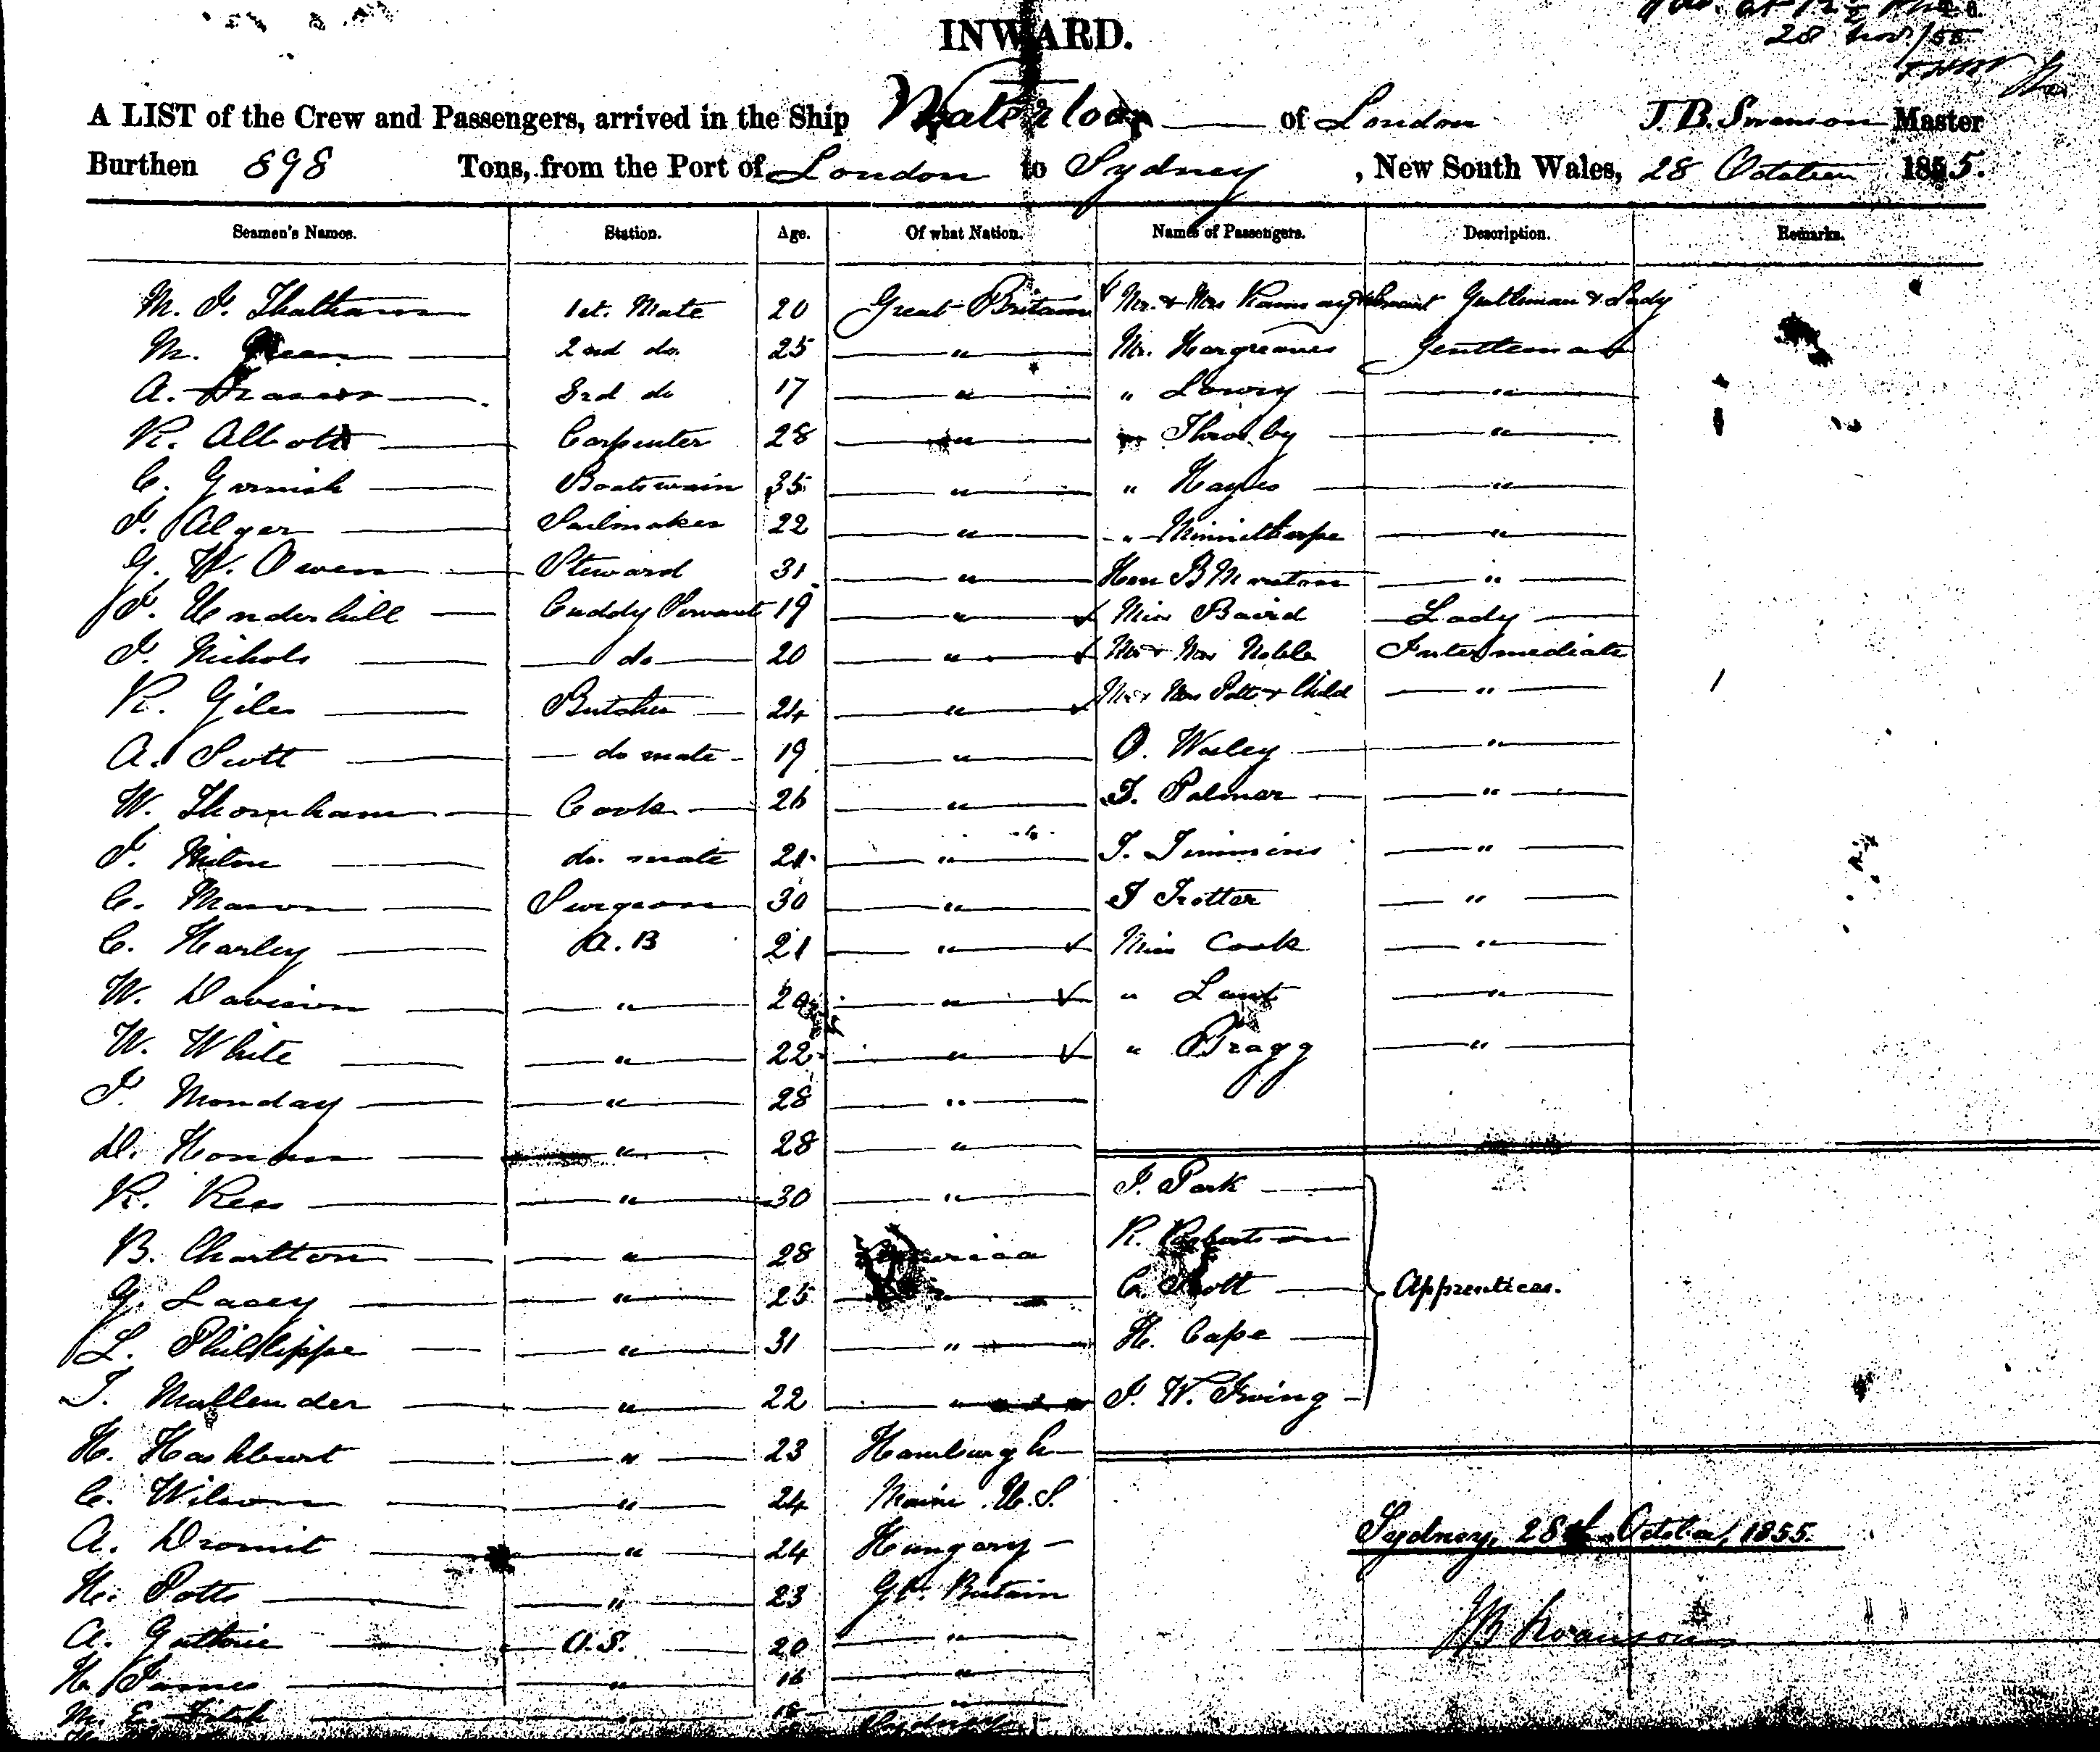 INWARD.
28 Nov/55
A LIST of the Crew and Passengers, arrived in the Ship Waterloo of London J. B. Swanson Master
Burthen 898 Tons, from the Port of London to Sydney, New South Wales, 28 October 1855.
Seamen's Names. Station. Age. Of what Nation. Names of Passengers. Description. Remarks.
1st. Mate 20 Great Britain Mr. & Mrs Ramsay & Servant Gentleman & Lady
M. Green 2nd do. 25 " Mr. Hargreaves Gentleman
A. 3rd do 17 " " Lowry "
R. Abbott Carpenter 28 " " Throsby "
C. Garnish Boatswain 35 " " Hayes "
J. Alger Sailmaker 22 " " "
G. W. Owen Steward 31 " Hon "
J. Underhill Cuddy Servant 19 " Miss Baird Lady
J. Nichols do 20 " Mr & Mrs Noble Intermediate
R. Giles Butcher 24 " Mr & Mrs Potts & Child "
A. Scott do mate 19 " O. "
W. Thornham Cook 26 " J. Palmer "
J. do. mate 21 " T. Timmins "
C. Mason Surgeon 30 " J Trotter "
C. Harley A.B 21 " Miss Cook "
W. Davison " 20 " " "
W. White " 22 " " Bragg "
J. Monday " 28 "
D. " 28 "
R. Rees " 30 " J. Park
B. Charlton " 28 America R. Robertson
G. Lacey " 25 " C. Scott Apprentices.
L. Phillippe " 31 " H. Cape
T. Mullender " 22 " J. W. Irving
H. " 23 Hamburgh
C. Wilson " 24 Maine U.S.
A. Dromit " 24 Hungary
Sydney, 28th October, 1855.
H. Potts " 23 Gt. Britain
A. Guthrie O.S. 20 "
J B Swanson
H. James " 16 "
W. E. " 18 "